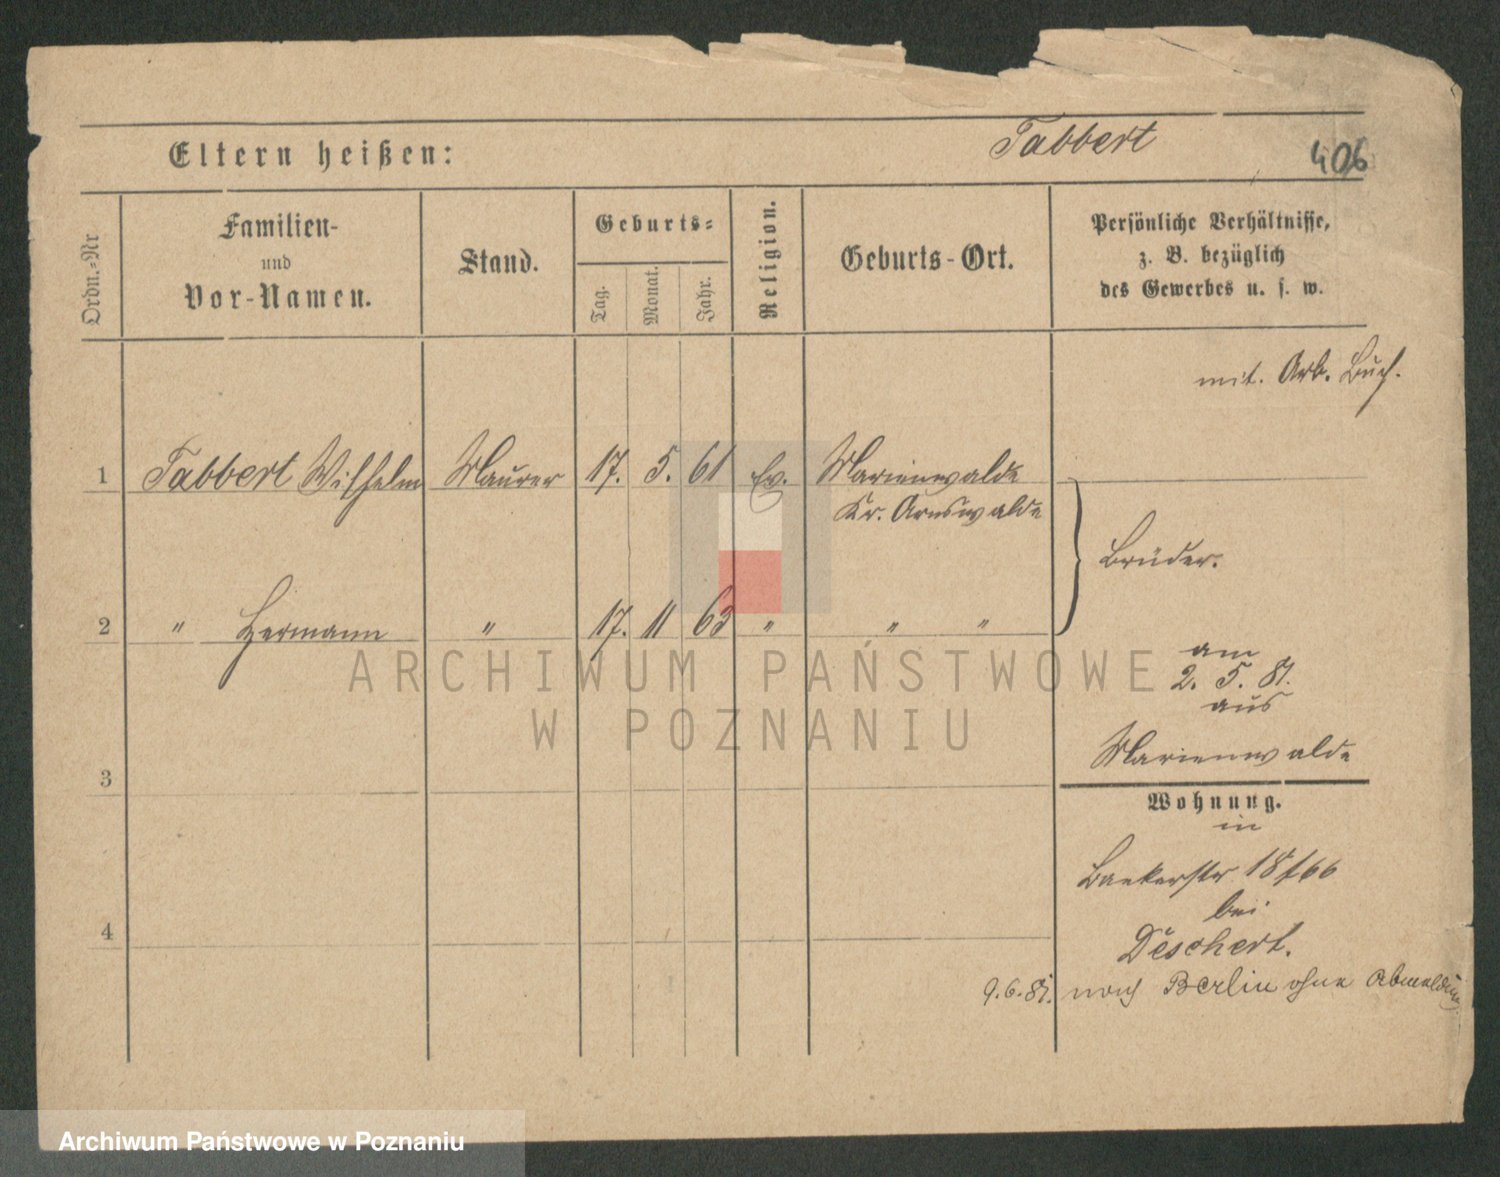 Eltern heißen:
Tabbert
406
Ordn.=Nr
Familien-
und
Vor-Namen.
Stand.
Geburts=
Tag.
Monat.
Jahr.
Religion.
Geburts-Ort.
Persönliche Verhältnisse,
z. B. bezüglich
des Gewerbes u. s. w.
mit. Arb. Buch.
1 Tabbert Wilhelm Maurer 17. 5. 61 Ev. Marienwalde
Kr. Arnswalde
Brüder.
2 " Hermann " 17. 11 63 " " "
am
2. 5. 81.
aus
Marienwalde
3
Wohnung.
in
18/66
bei
4
Deschert.
9.6.81. nach Berlin ohne Abmeldung
ARCHIWUM PAŃSTWOWE
W POZNANIU
Archiwum Państwowe w Poznaniu